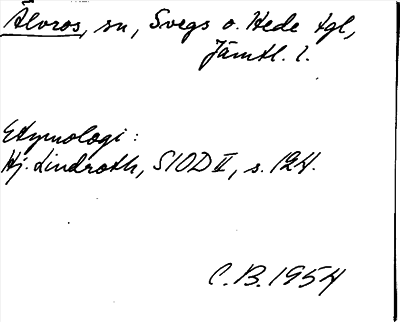 Älvros, sn, Svegs o. Hede tgl,
Jämtl. l.
Etymologi:
Hj. Lindroth, SIOD II, s. 124.
C.B. 1954